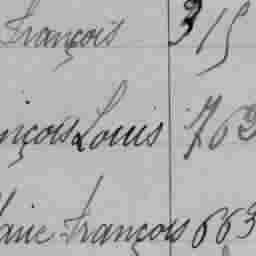 François 315
nçois Louis 763
Marie François 663